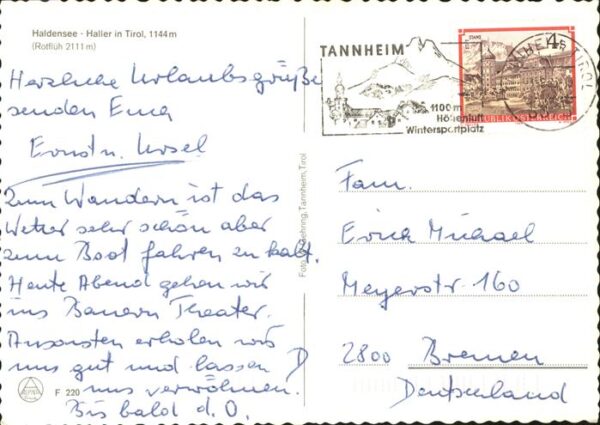 Haldensee - Haller in Tirol, 1144 m
(Rotflüh 2111 m)
Herzliche Urlaubsgrüße
senden Euch
Ernst u. Ursel
Zum Wandern ist das
Wetter sehr schön aber
zum Boot fahren zu kalt.
Heute Abend gehen wir
ins Bauern Theater.
Ansonsten erholen wir
uns gut und lassen
uns verwöhnen.
Bis bald d. O.
F 220
Tannheim, Tirol
TANNHEIM
1100 m
Höhenluft
Wintersportplatz
4
REPUBLIK ÖSTERREICH
Fam.
Erich Michael
Meyerstr 160
2800 Bremen
Deutschland